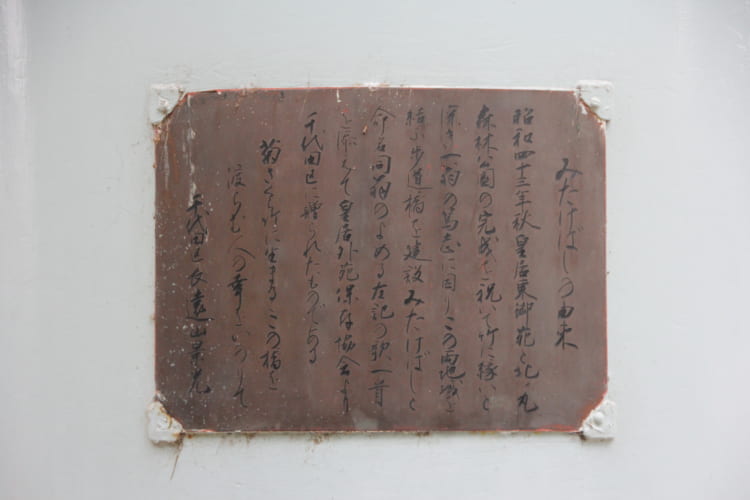 みたけばしの由来
昭和四十三年秋皇居東御苑と北の丸
森林公園の完成を祝いて竹に縁いと
深き一翁の篤志に因りこの両地域を
結ぶ歩道橋を建設みたけばしと
命名同翁のよめる左記の歌一首
を添えて皇居外苑保存協会より
千代田区に贈られたものである
菊さく竹に生まるこの橋を
渡らむ人の幸をいのりて
千代田区長遠山景光